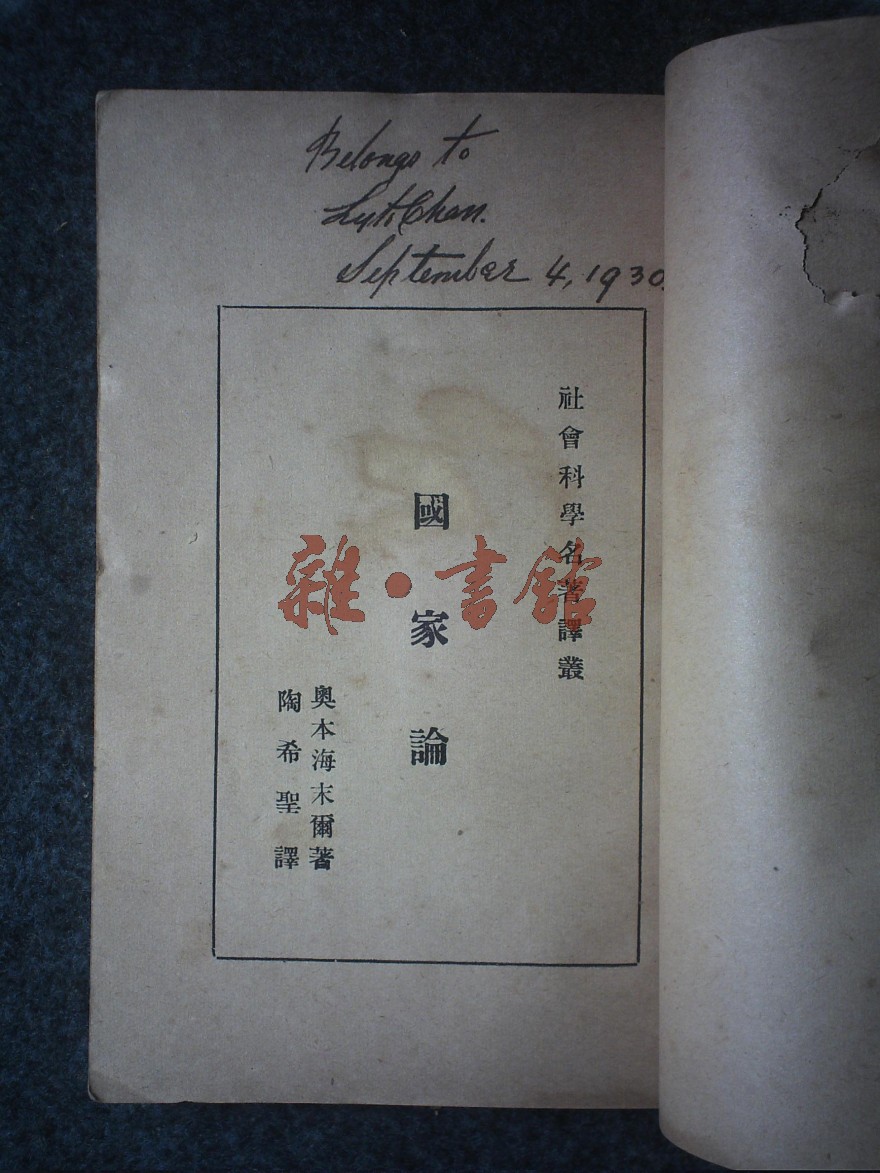 Belongs to
Chan.
September 4, 1930.
社會科學名著譯叢
國家論
奧本海末爾著
陶希聖譯
雜·書館